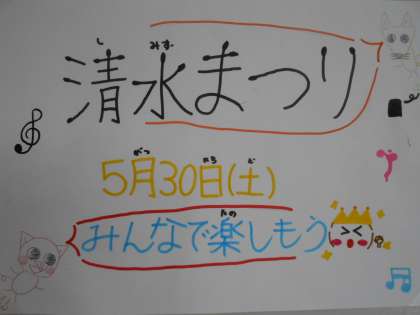 清水まつり
5月30日(土)
みんなで楽しもう